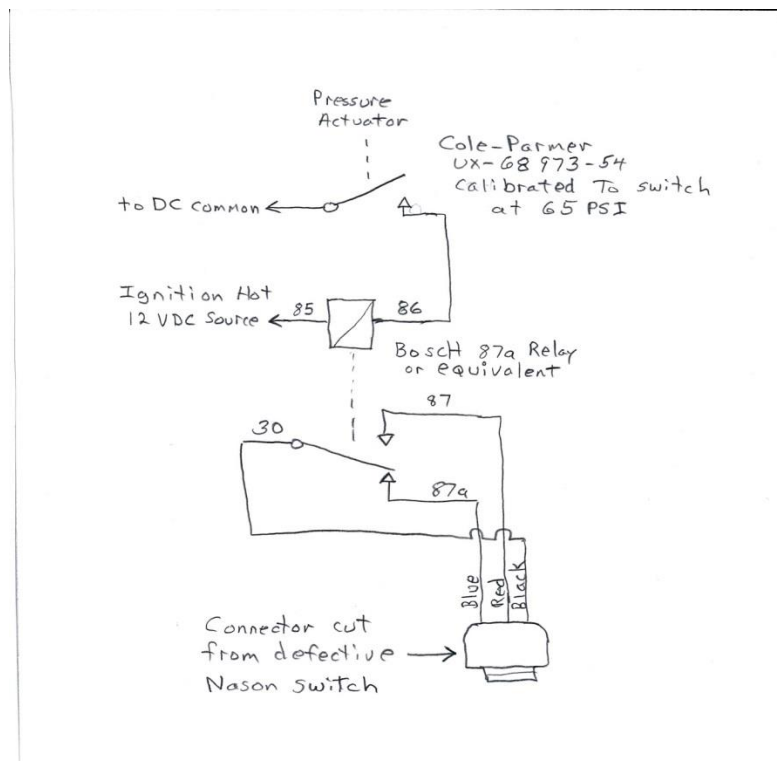 Pressure
Actuator
Cole-Parmer
UX-68973-54
Calibrated To switch
at 65 PSI
to DC Common
Ignition Hot
12 VDC Source
85
86
BoscH 87a Relay
or equivalent
87
30
87a
Blue
Red
Black
Connector cut
from defective
Nason switch